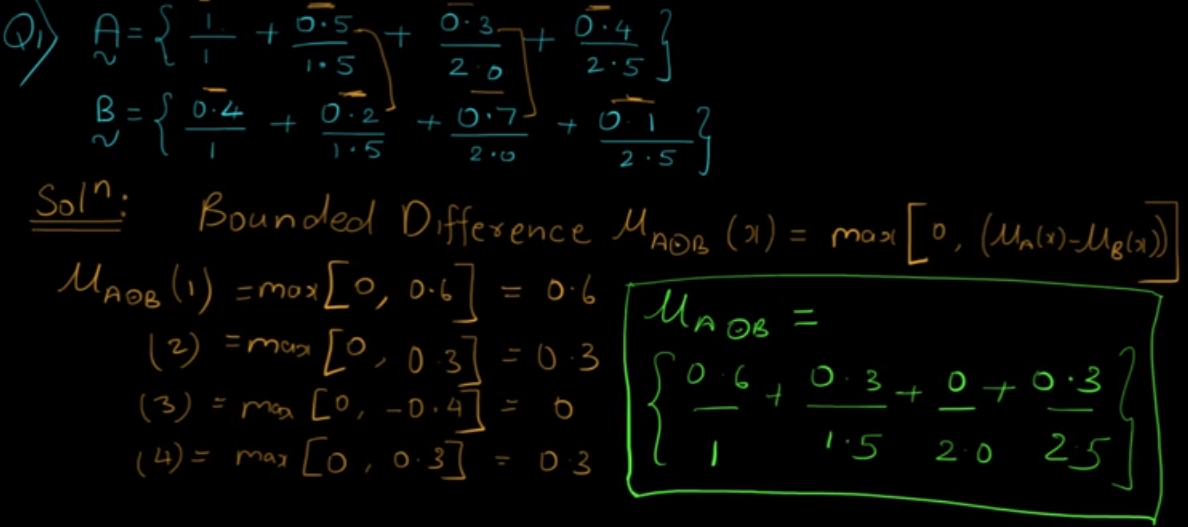 Q1) A̰ = { 1/1 + 0.5/1.5 + 0.3/2.0 + 0.4/2.5 }
B̰ = { 0.4/1 + 0.2/1.5 + 0.7/2.0 + 0.1/2.5 }
Solⁿ: Bounded Difference μA⊙B (x) = max [0, (μA(x)-μB(x))]
μA⊙B (1) = max [0, 0.6] = 0.6
(2) = max [0, 0.3] = 0.3
(3) = max [0, -0.4] = 0
(4) = max [0, 0.3] = 0.3
μA⊙B =
{ 0.6/1 + 0.3/1.5 + 0/2.0 + 0.3/2.5 }